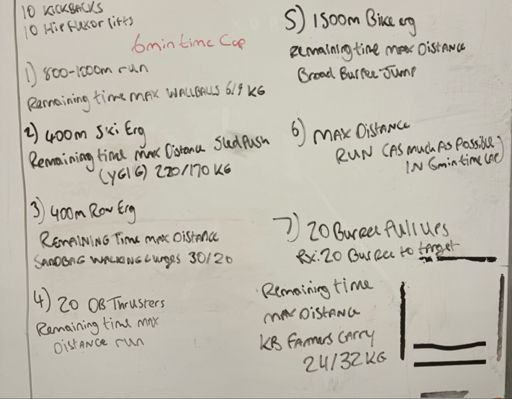 10 KICKBACKS
10 Hip Flexor lifts
6min time Cap
1) 800-1000m run
Remaining time MAX WALLBALLS 6/9 KG
2) 400m Ski Erg
Remaining time max Distance Sled Push
(YGIG) 220/170 KG
3) 400m Row Erg
REMAINING Time max DISTANCE
SANDBAG WALKING Lunges 30/20
4) 20 DB Thrusters
Remaining time max
Distance run
5) 1500m Bike erg
Remaining time max Distance
Broad Burpee Jump
6) MAX DISTANCE
RUN (AS much As Possible
IN 6min time cap)
7) 20 Burpee Pull ups
Rx: 20 Burpee to target
Remaining time
max Distance
KB Farmers Carry
24/32 KG